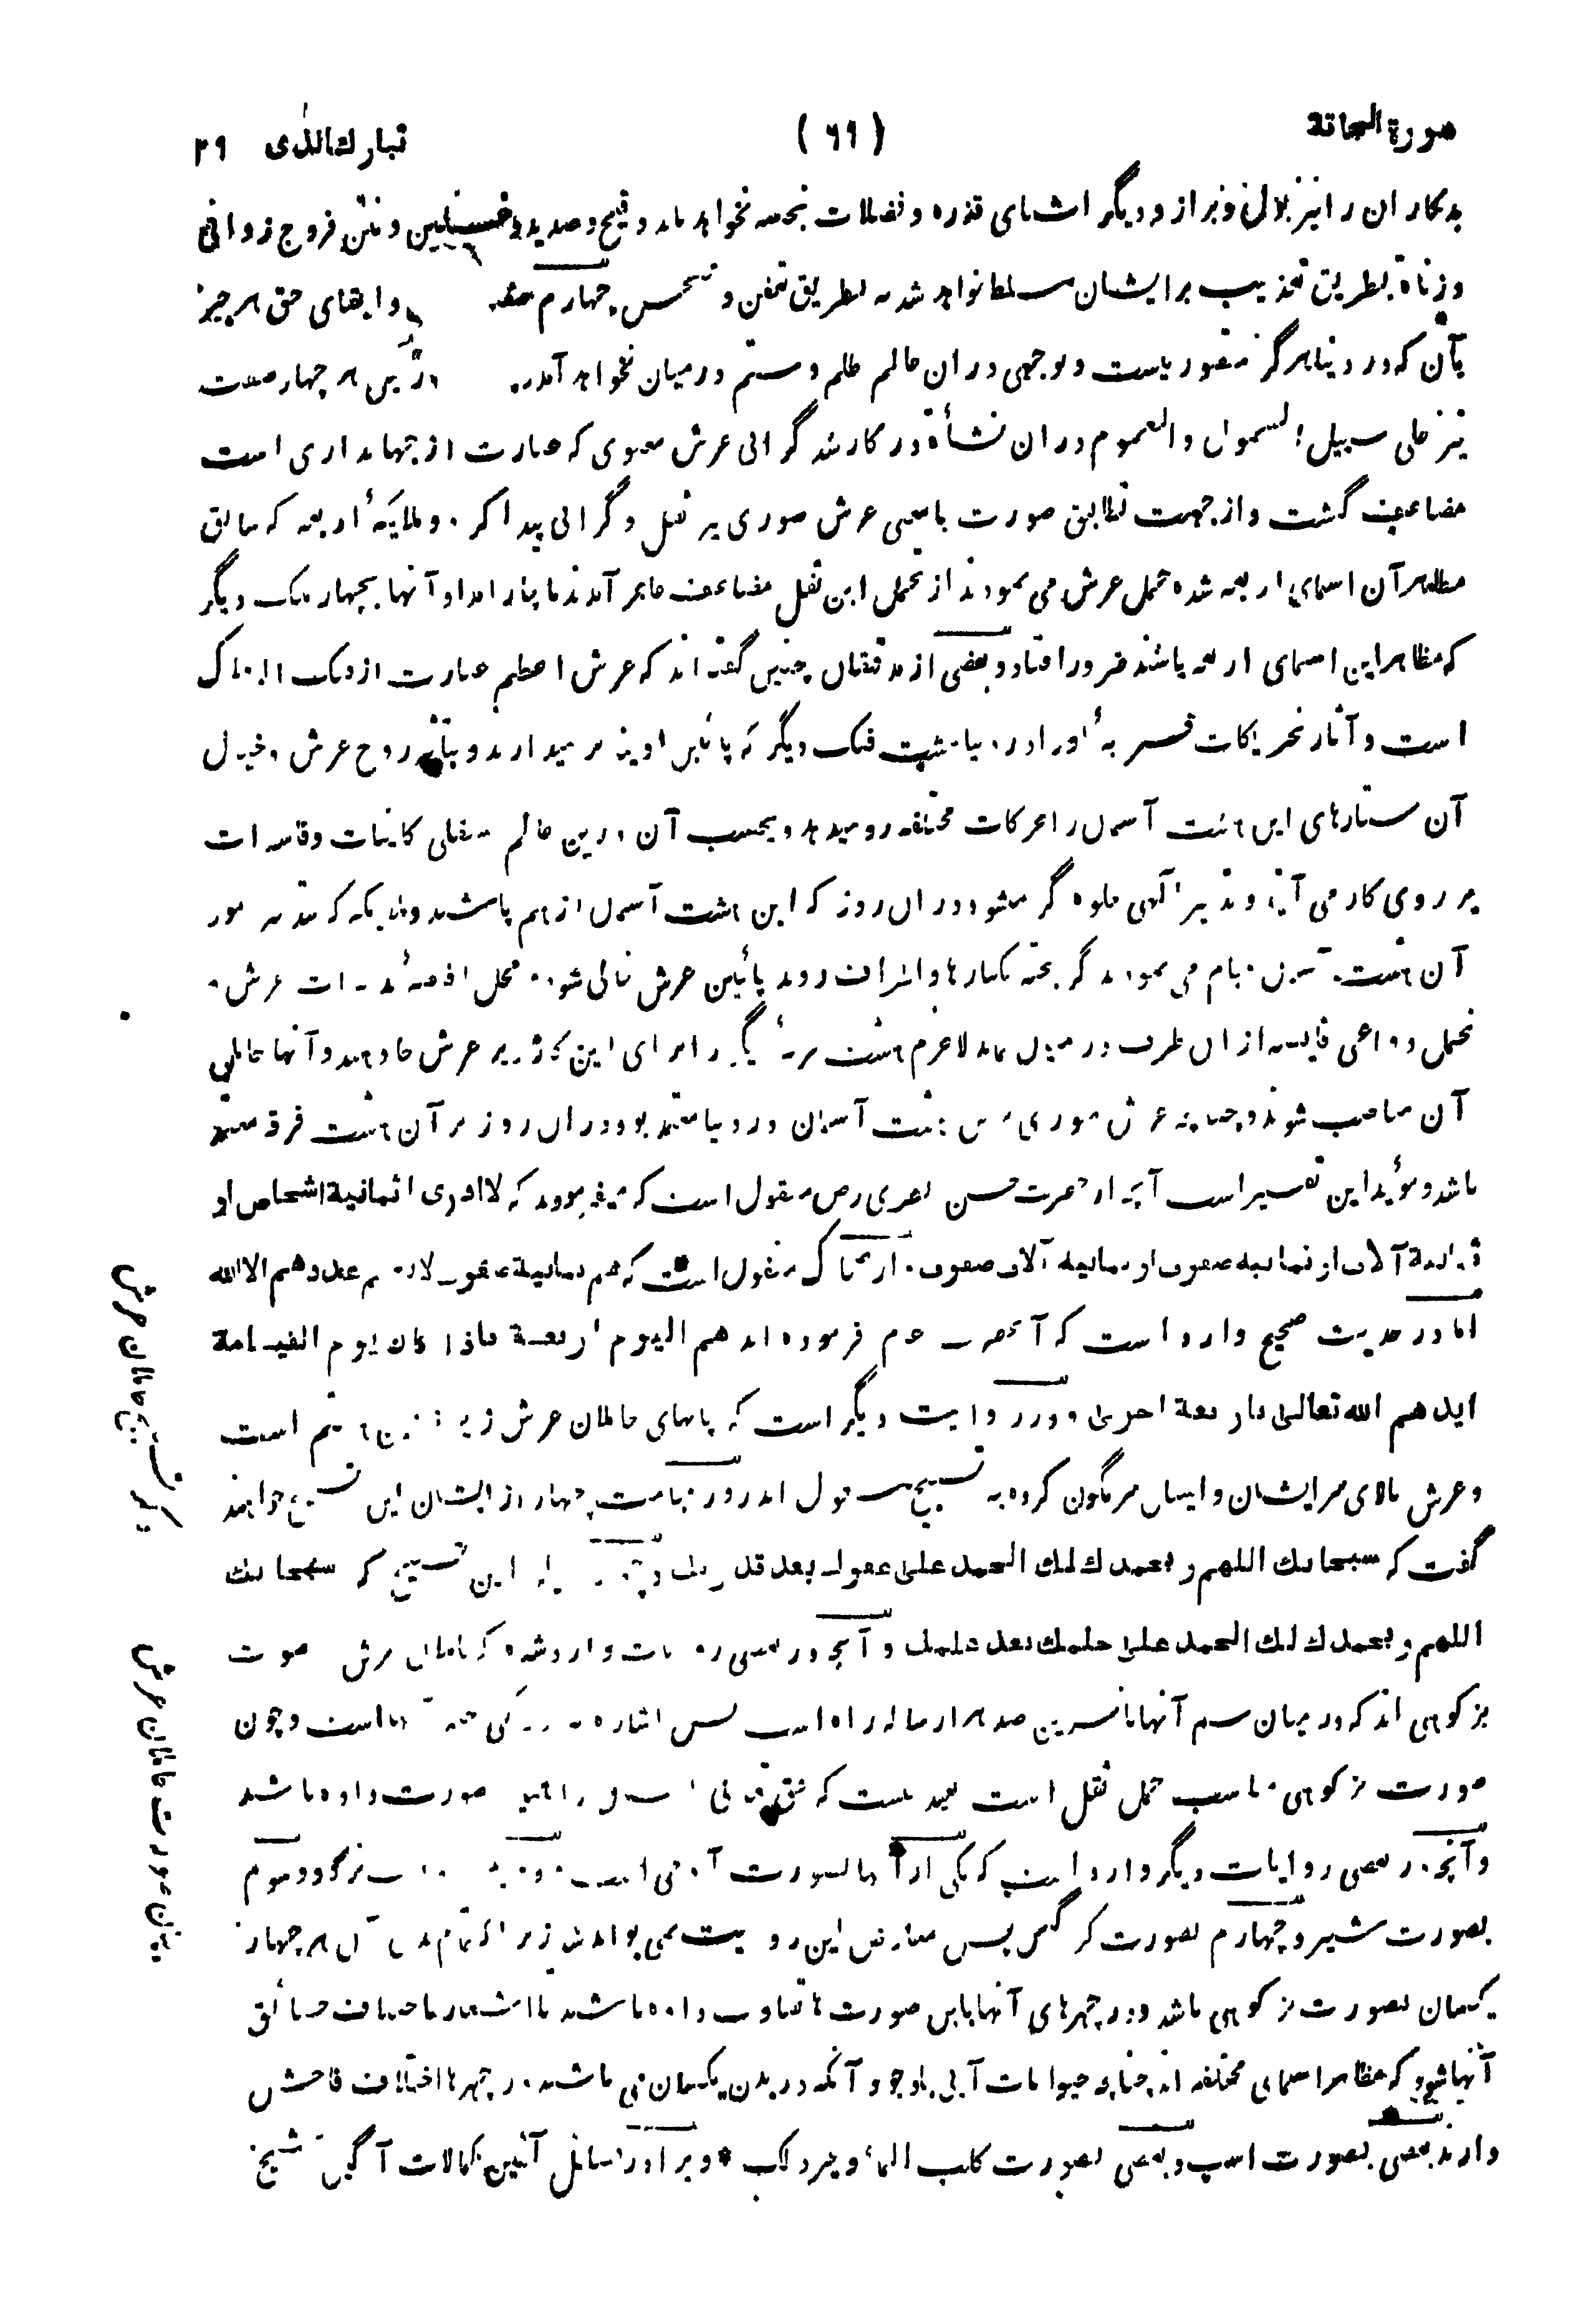 سورة الحاقة
(٦٩)
تبارك الذى ٢٩
بدکاران را نیز بلاتی و براز و دیگر اشیای قذره و فضلات نجسه نخواهد ماند و قیح و صدید و غسلین و نتن فروج زوانی
و زناة بطریق تعذیب بر ایشان مسلط خواهد شد نه بطریق تعفن و تنجس چهارم و ایفای حق هر چیز
بآن که در دنیا هرگز متصور نیست و بوجهی در ان عالم ظلم و ستم در میان نخواهد آمد پس هر چهار صفت
نیز علی سبیل الشمول و العموم در ان نشأة در کار شد گرانی عرش معنوی که عبارت از جهانداری است
مضاعف گشت و از جهت تطابق صورت با معنی عرش صوری نیز ثقل و گرانی پیدا کرد و ملایکهٔ اربعه که سابق
مظاهر آن اسمای اربعه شده تحمل عرش می نمودند از تحمل این ثقل مضاعف عاجز آمدند ناچار امداد آنها بچهار ملک دیگر
که مظاهر این اسمای اربعه باشند ضرور افتاد و بعضی از مدققان چنین گفته اند که عرش اعظم عبارت از فلک الافلاک
است و آثار تحریکات قسریهٔ او را در دنیا هشت فلک دیگر که پائین اویند بر میدارند و بتأثیر روح عرش و خیال
آن ستارهای این هشت آسمان را حرکات مختلفه رو میدهد و بحسب آن درین عالم سفلی کاینات و فاسدات
بر روی کار می آیند و تدبیر الهی جلوه گر میشود در ان روز که این هشت آسمان از هم پاشند و ملایکه که تدبیر امور
آن هشت می نمودند گریخته بکنارها و اطراف روند پائین عرش خالی شود
تحمل دواعی فایضه از ان طرف در میان نماند لاجرم هشت فرشتهٔ دیگر را برای این کار زیر عرش جا دهند و آنها حامل
آن مناصب شوند و چنانچه عرش صوری بر هشت آسمان در دنیا معتمد بود در ان روز بر آن هشت فرقه معتمد
باشد و مؤید این تفسیر است آنچه از حضرت حسن بصری رض منقول است که میفرمودند که لا ادرى اثمانية اشخاص او
ثمانية آلاف او ثمانية صفوف او ثمانية آلاف صفوف و از ضحاک منقول است که هم ثمانية صفوف لا يعلم عددهم الا الله
اما در حدیث صحیح وارد است که آنحضرت عم فرموده اند هم اليوم اربعة فاذا كان يوم القيامة
ايدهم الله تعالى باربعة اخرى و در روایت دیگر است که پایهای حاملان عرش زیر زمین هفتم است
و عرش بالای سر ایشان و ایشان سر نگون کرده به تسبیح مشغول اند روز قیامت چهار از ایشان این تسبیح خواهند
گفت که سبحانك اللهم و بحمدك لك الحمد على عفوك بعد قدرتك و چهار این تسبیح که سبحانك
اللهم و بحمدك لك الحمد على حلمك بعد علمك و آنچه در بعضی روایات وارد شده که حاملان عرش بصورت
بز کوهی اند که در میان سم آنها تا سرین صد هزار ساله راه است پس اشاره است و چون
صورت بز کوهی مناسب حمل ثقل است بعید نیست که صورت داده باشند
و آنچه در بعضی روایات دیگر وارد است که یکی از آنها بصورت آدمی است و دوم بصورت نر گاو و سوم
بصورت شیر و چهارم بصورت کرگس پس معارض این روایت نمی تواند شد زیرا که تمام بدن آن هر چهار
یکسان بصورت بز کوهی باشد و در چهرهای آنها باین صورت ها تفاوت داده باشند تا اشعار باختلاف حقائق
آنها شود که مظاهر اسمای مختلفه اند چنانچه حیوانات آبی باوجود آنکه در بدن یکسان می باشند در چهرها اختلاف فاحش
دارند بعضی بصورت اسپ و بعضی بصورت کلب الماء و غیر ذلک * و برادر فضائل آئین کمالات آگین شیخ
ذکر تسبیح حاملان عرش
بیان صورت حاملان عرش